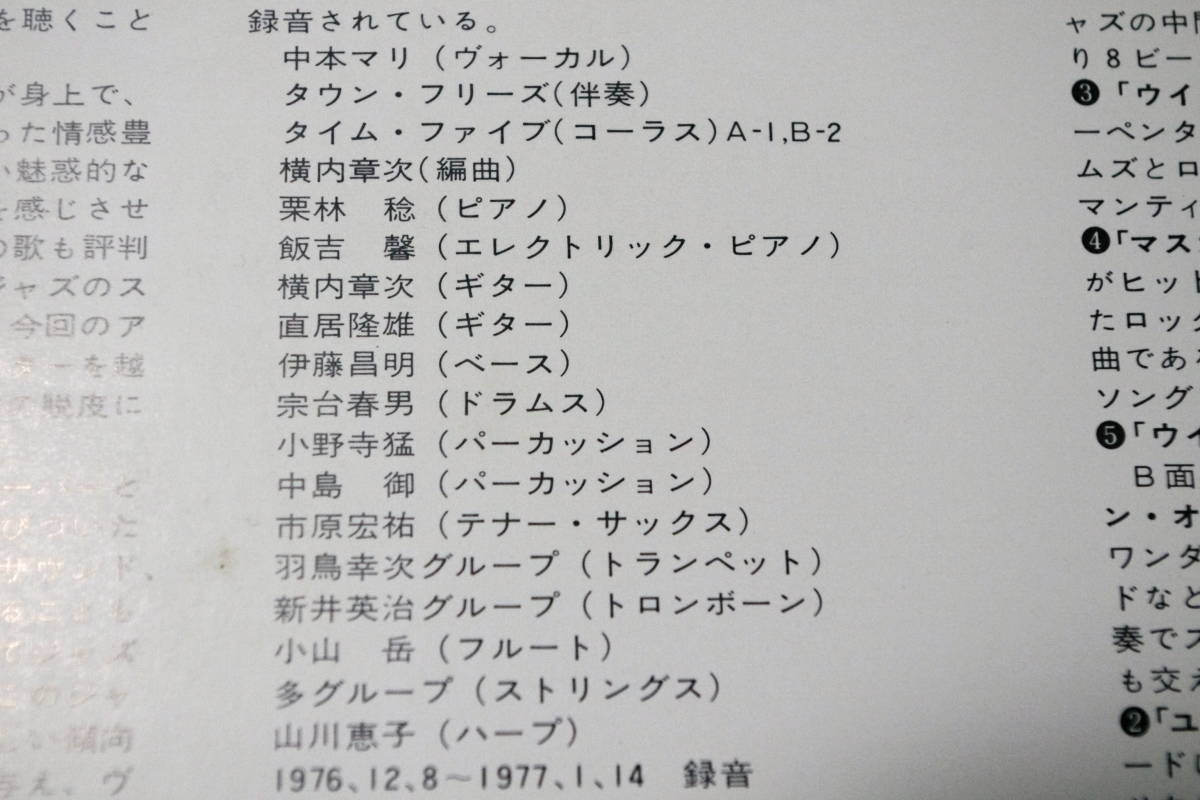 を聴くこと
が身上で、
った情感豊
い魅惑的な
を感じさせ
の歌も評判
ジャズのス
今回のア
を越
脱度に
と
ひついた
サウンド、
ることも
てジャズ
このジャ
しい傾向
与え、ヴ
録音されている。
中本マリ（ヴォーカル）
タウン・フリーズ（伴奏）
タイム・ファイブ（コーラス）A-1,B-2
横内章次（編曲）
栗林　稔（ピアノ）
飯吉　馨（エレクトリック・ピアノ）
横内章次（ギター）
直居隆雄（ギター）
伊藤昌明（ベース）
宗台春男（ドラムス）
小野寺猛（パーカッション）
中島　御（パーカッション）
市原宏祐（テナー・サックス）
羽鳥幸次グループ（トランペット）
新井英治グループ（トロンボーン）
小山　岳（フルート）
多グループ（ストリングス）
山川恵子（ハープ）
1976、12、8～1977、1、14　録音
ャズの中
り8ビー
❸「ウイ
ーペンタ
ムズとロ
マンティ
❹「マス
がヒット
たロック
曲である
ソング
❺「ウイ
B面
ン・オ
ワンダ
ドなと
奏でス
も交え
❷「ユ
ードし